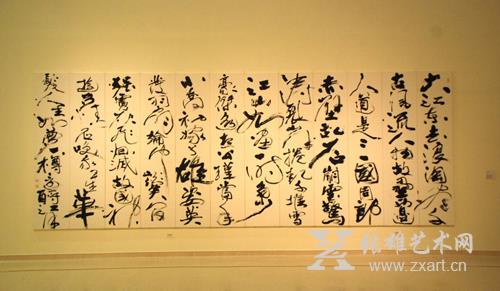 大江东去浪淘尽
古风流人物故垒西边
人道是三国周郎
赤壁乱石崩云惊
涛裂岸捲起千堆雪
江山如画一时多
豪杰遥想公瑾当年
小乔初嫁了雄姿英
发羽扇纶巾谈笑间
灰飞烟灭故国神
游多情应笑我早生华
发人生如梦一樽还酹江月
张雄艺术网
www.zxart.cn